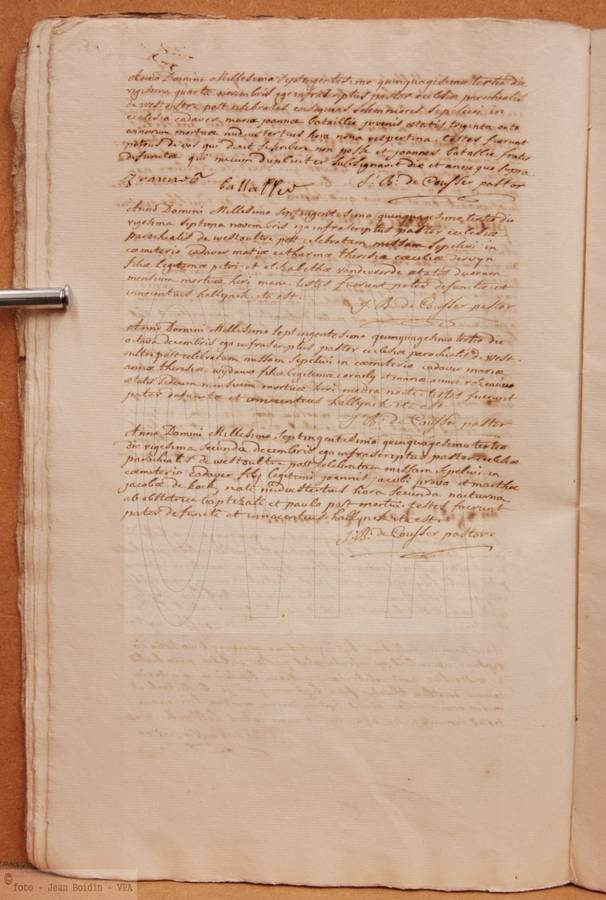 Anno Domini Millesimo septingentesimo quinquagesimo tertio die
vigesima quarta novembris ego infrascriptus pastor ecclesiæ parochialis
de westoultre post celebratas exequias solemniores sepelivi in
ecclesia cadaver mariæ joannæ bataillie juvenis ætatis triginta octo
annorum mortuæ nudius tertius hora nona vespertina testes fuerunt
petrus de vos qui dixit scribere non posse et joannes bataille frater
defunctæ qui mecum dupliciter subsignavit die et anno quo supra
J: B: de Cousser pastor
Anno Domini Millesimo septingentesimo quinquagesimo tertio die
vigesima septima novembris ego infrascriptus pastor ecclesiæ
parochialis de westoulter post celebratam missam sepelivi in
cœmiterio cadaver mariæ catharinæ theresiæ cæciliæ
filiæ legitimæ petri et elisabethæ vandevoorde ætatis duorum
mensium mortuæ heri mane. testes fuerunt pater defunctæ et
innocentius hallynck ita est.
J: B: de Cousser pastor
Anno Domini Millesimo septingentesimo quinquagesimo tertio die
octava decembris ego infrascriptus pastor ecclesiæ parochialis de west-
oultre post celebratam missam sepelivi in cœmiterio cadaver mariæ
annæ theresiæ filiæ legitimæ cornely et mariæ annæ
ætatis sedecim mensium mortuæ heri media nocte testes fuerunt
pater defunctæ et innocentius hallynck ita est
J: B: de Cousser pastor
Anno Domini Millesimo septingentesimo quinquagesimo tertio
die vigesima secunda decembris ego infrascriptus pastor ecclesiæ
parochialis de westoultre post celebratam missam sepelivi in
cœmiterio cadaver filij legitimi joannis jacobi provo et marthæ
jacobæ de kock nati nudiustertius hora secunda nocturna
ab obstetrice baptizati et paulo post mortui testes fuerunt
pater defuncti et innocentius hallynck ita est
J: B: de Cousser pastor
© foto - Jean Boidin - VPA